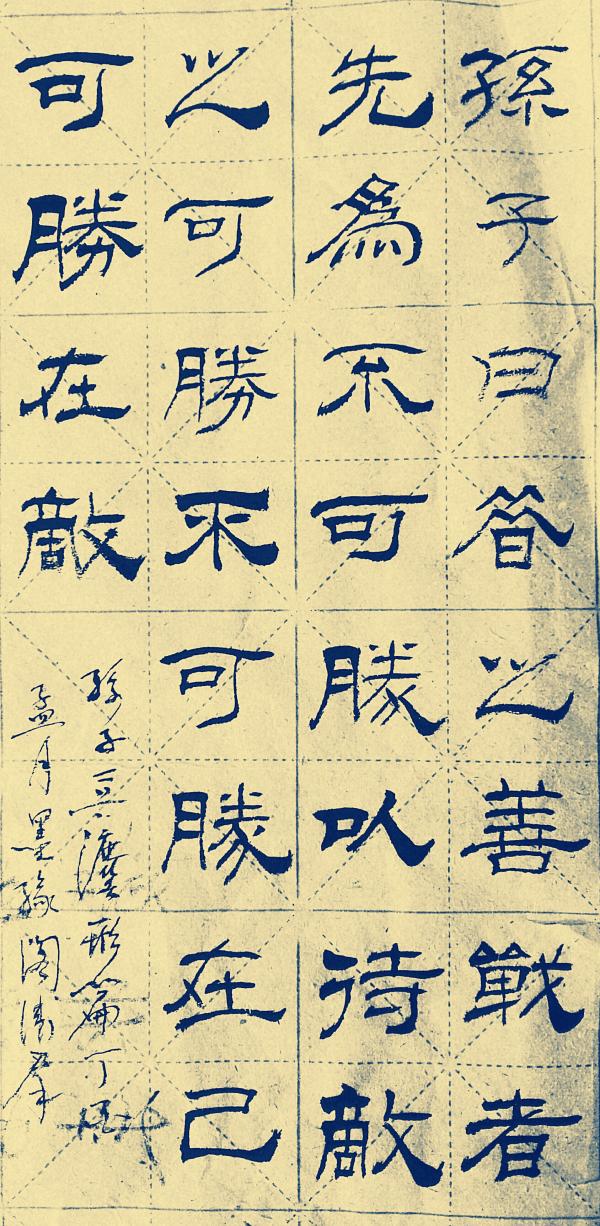 孫子曰昔之善戰者
先爲不可勝以待敵
之可勝不可勝在己
可勝在敵
孫子兵灋形篇丁酉
孟月墨緣閣